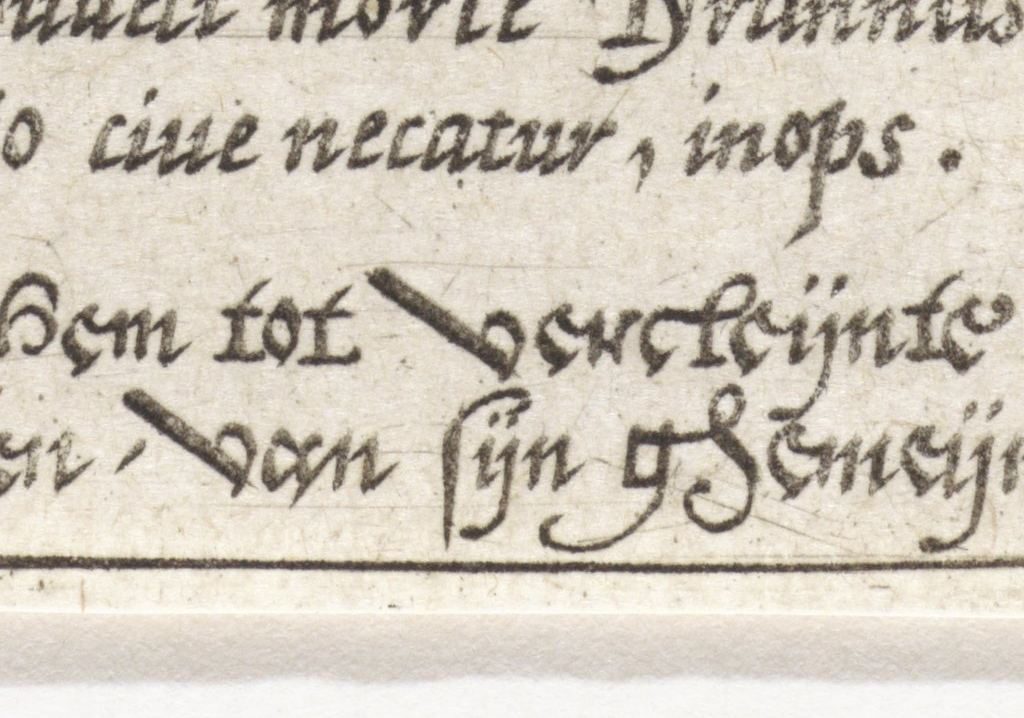 morte Tyrannus
ciue necatur, inops.
Hem tot Vercleijnte
Van sijn ghemeijn